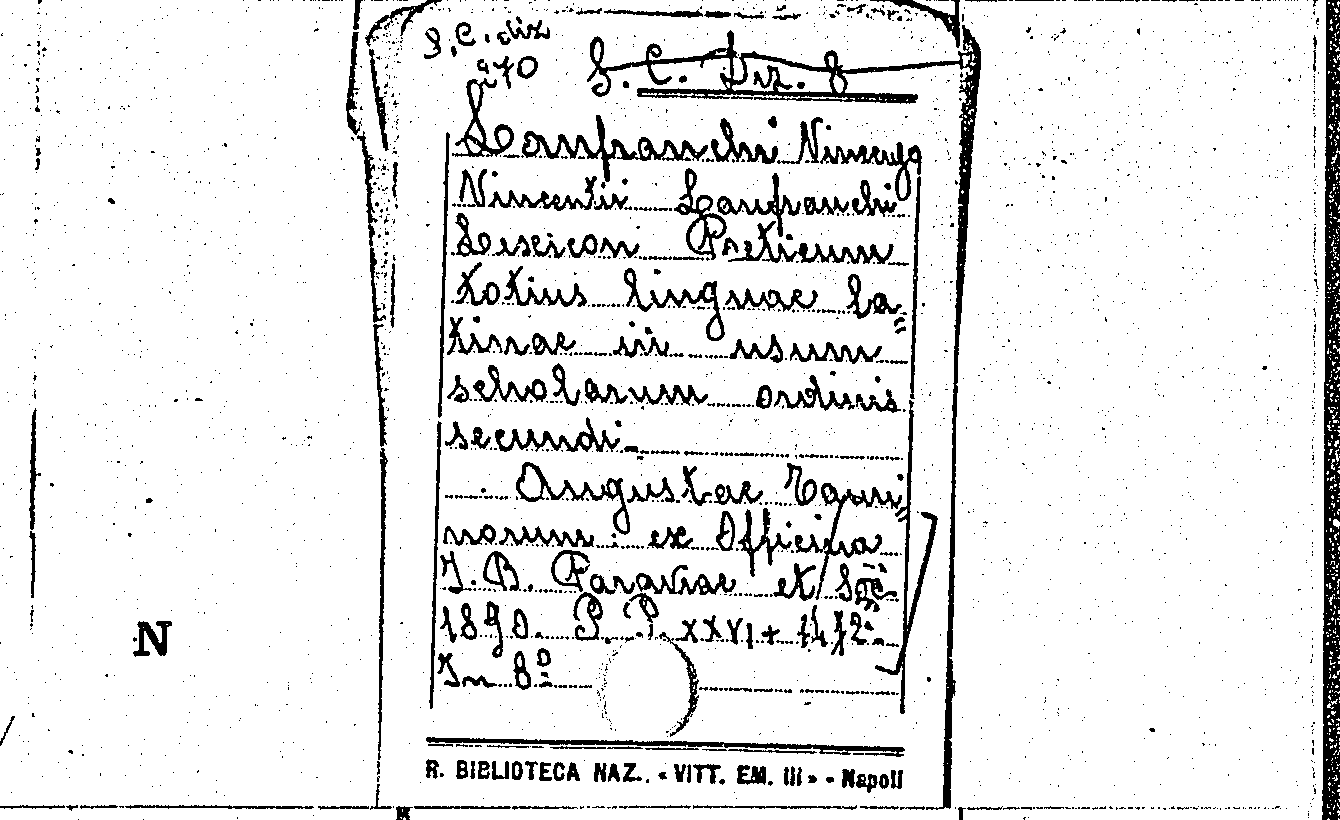 S.C. diz
270
S. C. Diz. 8
Lanfranchi Vincenzo
Vincentii Lanfranchi
Lexicon Poeticum
totius linguae la=
tinae in usum
scholarum ordinis
secundi_
Augustae Tauri=
norum: ex Officina
J. B. Paraviae et Soc.
1890. P. P. XXVI +
In 8º
R. BIBLIOTECA NAZ. « VITT. EM. III » - Napoli
N